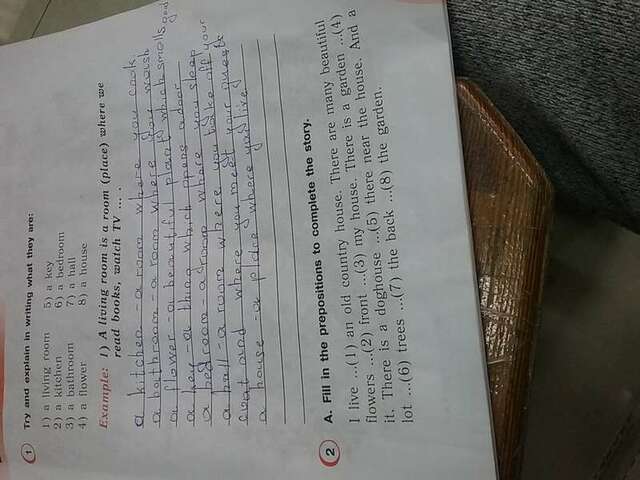 1 Try and explain in writing what they are:
1) a living room 5) a key
2) a kitchen 6) a bedroom
3) a bathroom 7) a hall
4) a flower 8) a house
Example: 1) A living room is a room (place) where we
read books, watch TV ... .
a kitchen - a room where you cook.
a bathroom - a room where you wash
a flower - a beautiful plant which smells good
a key - a thing which opens a door
a bedroom - a room where you sleep
a hall - a room where you take off your
coat and where you meet your guests
a house - a place where you live
2 A. Fill in the prepositions to complete the story.
I live ...(1) an old country house. There are many beautiful
flowers ...(2) front ...(3) my house. There is a garden ...(4)
it. There is a doghouse ...(5) there near the house. And a
lot ...(6) trees ...(7) the back ...(8) the garden.